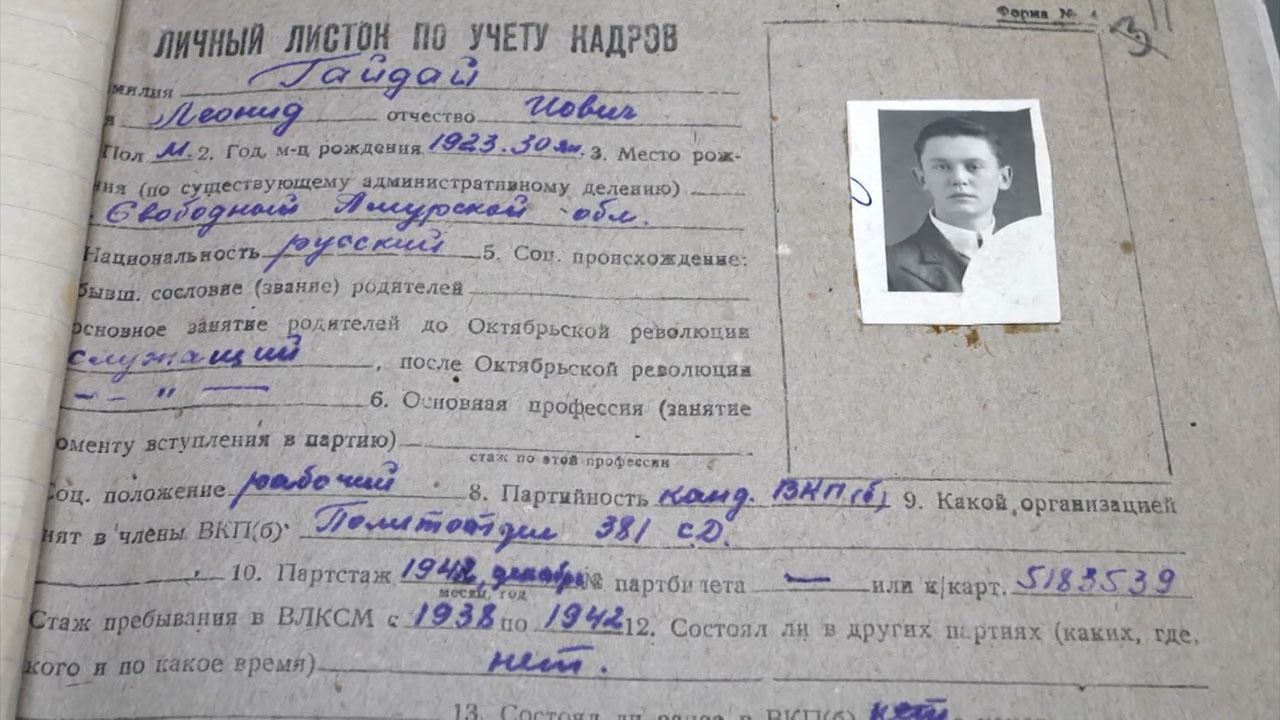 Форма №
ЛИЧНЫЙ ЛИСТОК ПО УЧЕТУ КАДРОВ
милия Гайдай
я Леонид отчество Иович
Пол м. 2. Год, м-ц рождения 1923. 30 ян. 3. Место рож-
ния (по существующему административному делению)
Свободный Амурской обл.
Национальность русский 5. Соц. происхождение:
бывш. сословие (звание) родителей
основное занятие родителей до Октябрьской революции
служащий, после Октябрьской революции
— — " — 6. Основная профессия (занятие
оменту вступления в партию)
стаж по этой профессии
Соц. положение рабочий 8. Партийность канд. ВКП(б) 9. Какой организацией
нят в члены ВКП(б) Политотдел 381 с.Д.
10. Партстаж 1942, декабрь № партбилета — или к/карт. 5183539
месяц, год
Стаж пребывания в ВЛКСМ с 1938 по 1942 12. Состоял ли в других партиях (каких, где,
кого и по какое время) нет.
13. Состоял ли ранее в ВКП(б) нет